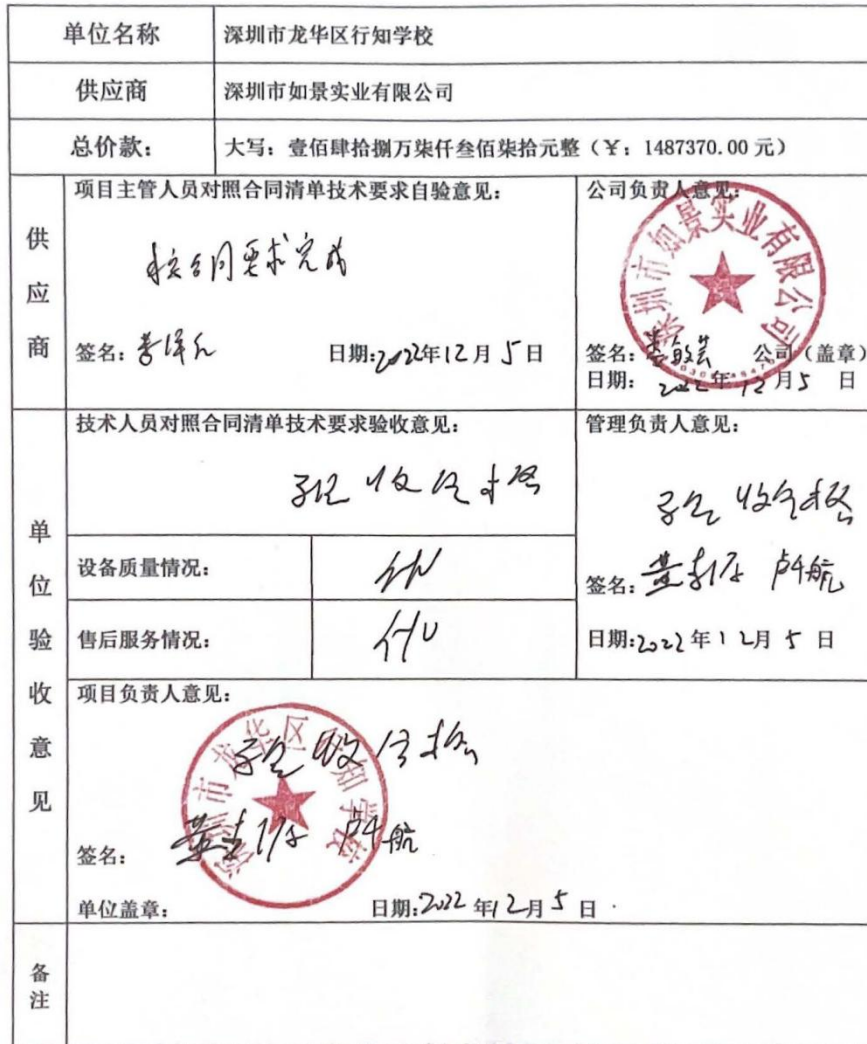 单位名称 深圳市龙华区行知学校
供应商 深圳市如景实业有限公司
总价款: 大写: 壹佰肆拾捌万柒仟叁佰柒拾元整(¥: 1487370.00 元)
供应商
项目主管人员对照合同清单技术要求自验意见:
按合同要求完成
签名:
日期:2022年12月5日
公司负责人意见:
深圳市如景实业有限公司
签名: 公司(盖章)
日期: 2022年12月5日
单位验收意见
技术人员对照合同清单技术要求验收意见:
验收合格
设备质量情况: 优
售后服务情况: 优
管理负责人意见:
验收合格
签名: 卢航
日期:2022年12月5日
项目负责人意见:
验收合格
深圳市龙华区行知学校
签名: 卢航
单位盖章: 日期:2022年12月5日
备注